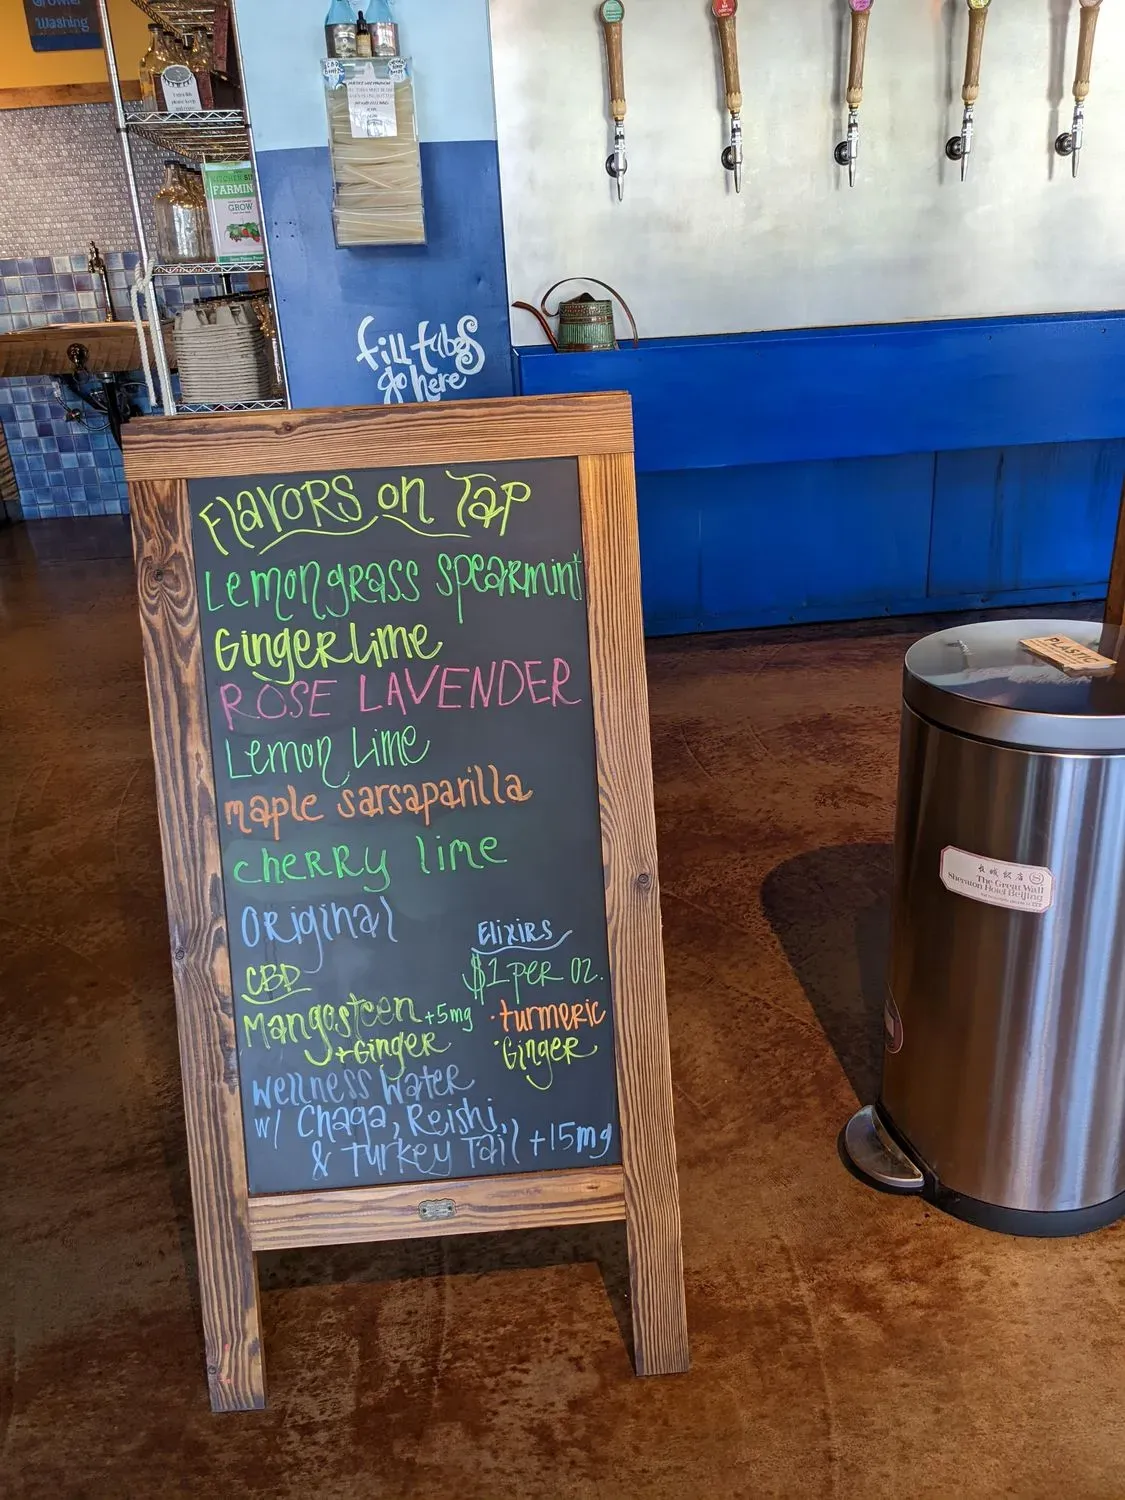 Growler
Washing
KITCHEN
FARMIN
GROW
fill tubes
go here
Flavors on Tap
Lemongrass Spearmint
Ginger Lime
ROSE LAVENDER
Lemon Lime
maple sarsaparilla
cherry lime
Original
Elixirs
$1 per oz.
• turmeric
• Ginger
CBD
Mangosteen +5mg
+Ginger
Wellness Water
w/ Chaga, Reishi,
& Turkey Tail +15mg
PLASTIC
长城饭店
The Great Wall
Sheraton Hotel Beijing